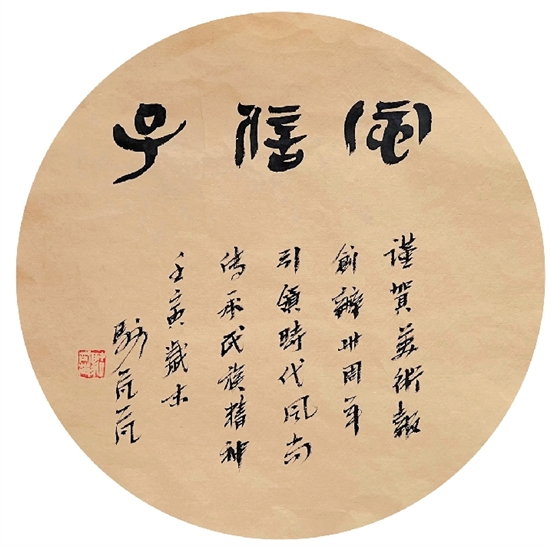 風信子
謹賀美術報
創辦卅周年
引領時代風尚
傳承民族精神
壬寅歲末
駱芃芃